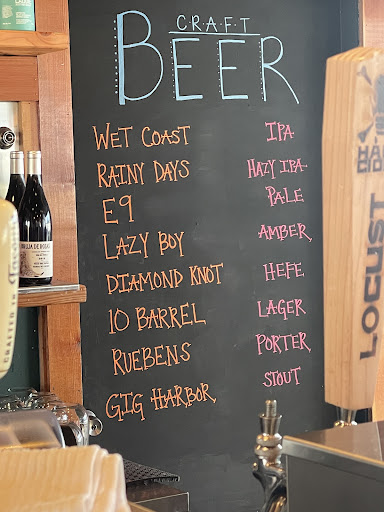 CRAFT
BEER
WET COAST IPA
RAINY DAYS HAZY IPA
E9 PALE
LAZY BOY AMBER
DIAMOND KNOT HEFE
10 BARREL LAGER
RUEBENS PORTER
GIG HARBOR STOUT
LOCUST
CRAFTED